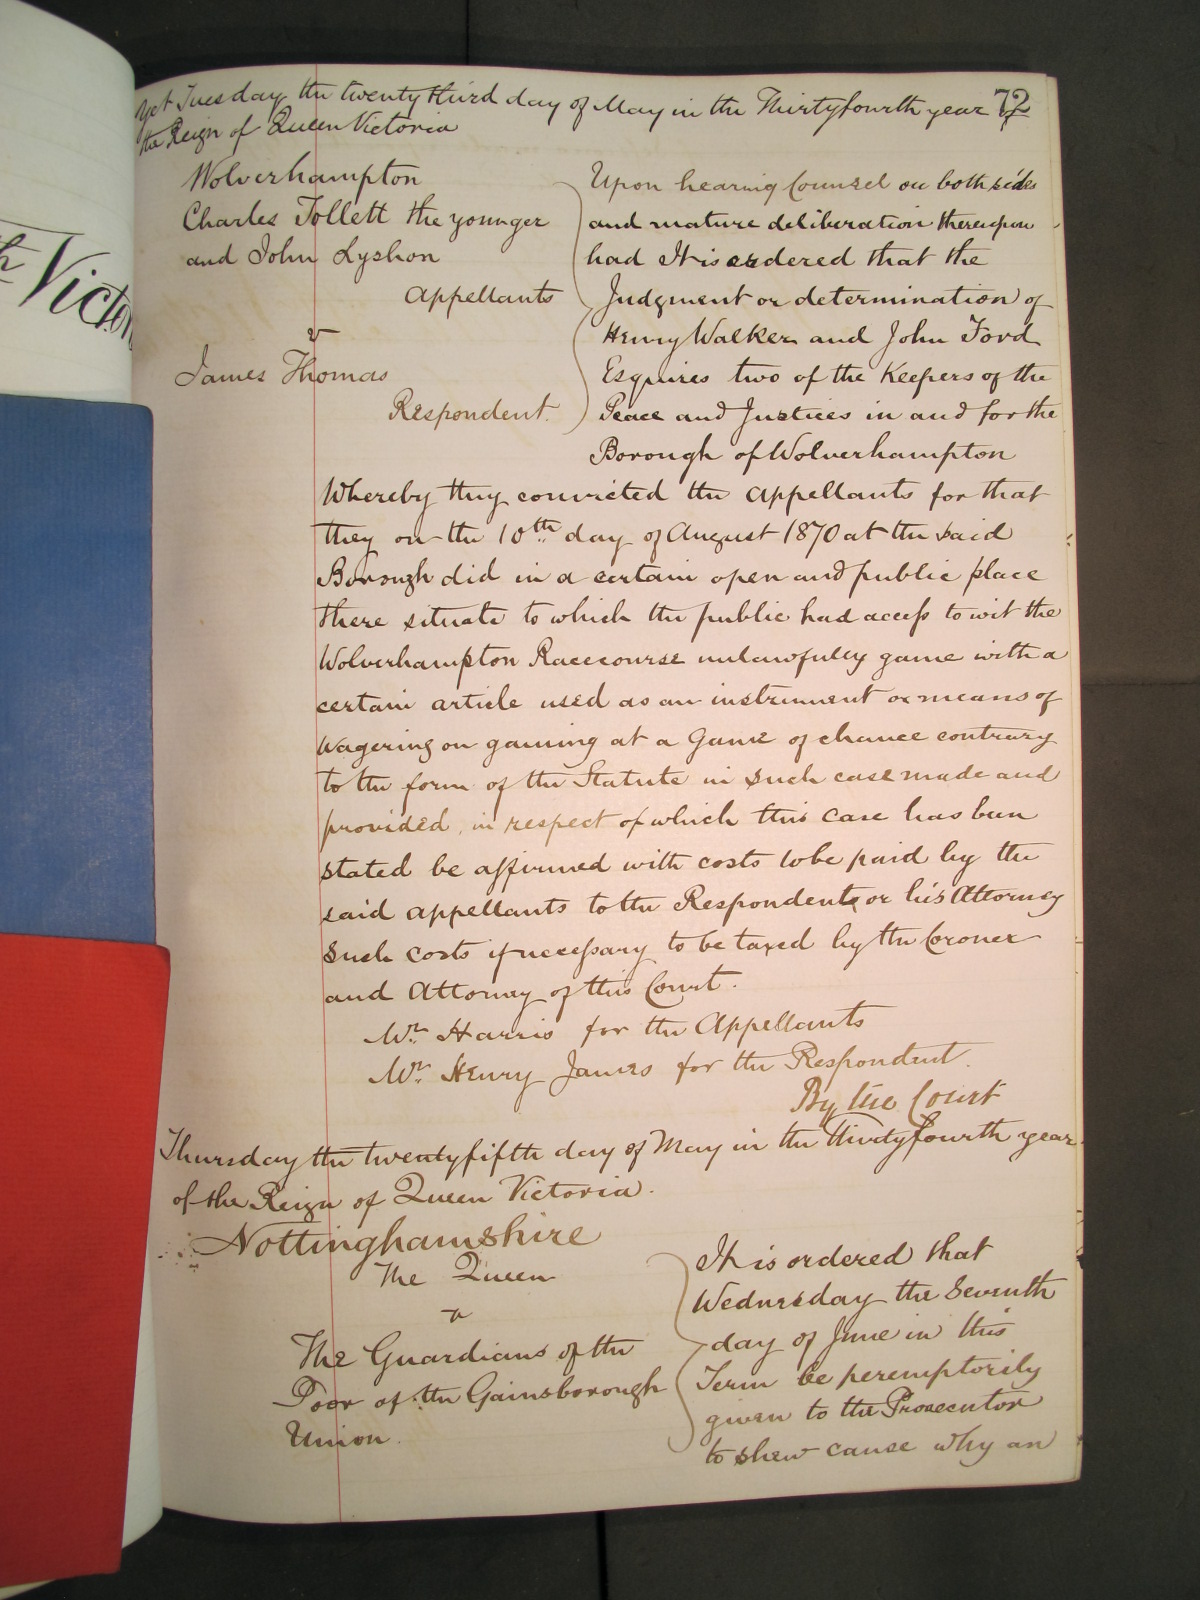 Yet Tuesday the twenty third day of May in the Thirtyfourth year 72
the Reign of Queen Victoria
Wolverhampton
Charles Tollett the younger
and John Lyshon
Appellants
v
James Thomas
Respondent.
Upon hearing Counsel on both sides
and mature deliberation thereupon
had It is ordered that the
Judgment or determination of
Henry Walker and John Ford
Esquires two of the Keepers of the
Peace and Justices in and for the
Borough of Wolverhampton
Whereby they convicted the appellants for that
they on the 10th day of August 1870 at the said
Borough did in a certain open and public place
there situate to which the public had access to wit the
Wolverhampton Racecourse unlawfully game with a
certain article used as an instrument or means of
Wagering or gaming at a Game of chance contrary
to the form of the Statute in such case made and
provided, in respect of which this case has been
stated be affirmed with costs to be paid by the
said appellants to the Respondent or his Attorney
such costs if necessary to be taxed by the Coroner
and Attorney of this Court.
Mr. Harris for the Appellants
Mr. Henry James for the Respondent.
By the Court
Thursday the twentyfifth day of May in the Thirtyfourth year
of the Reign of Queen Victoria.
Nottinghamshire
The Queen
v
The Guardians of the
Poor of the Gainsborough
Union.
It is ordered that
Wednesday the Seventh
day of June in this
Term be peremptorily
given to the Prosecutor
to shew cause why an